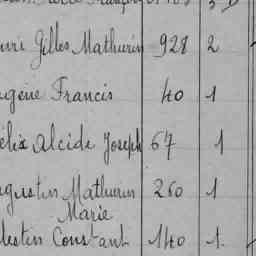 uri Gilles Mathurin 928 2
ugène Francis 40 1
élix Alcide Joseph 67 1
ugustin Mathurin 260 1
Marie
lestin Constant 140 1.